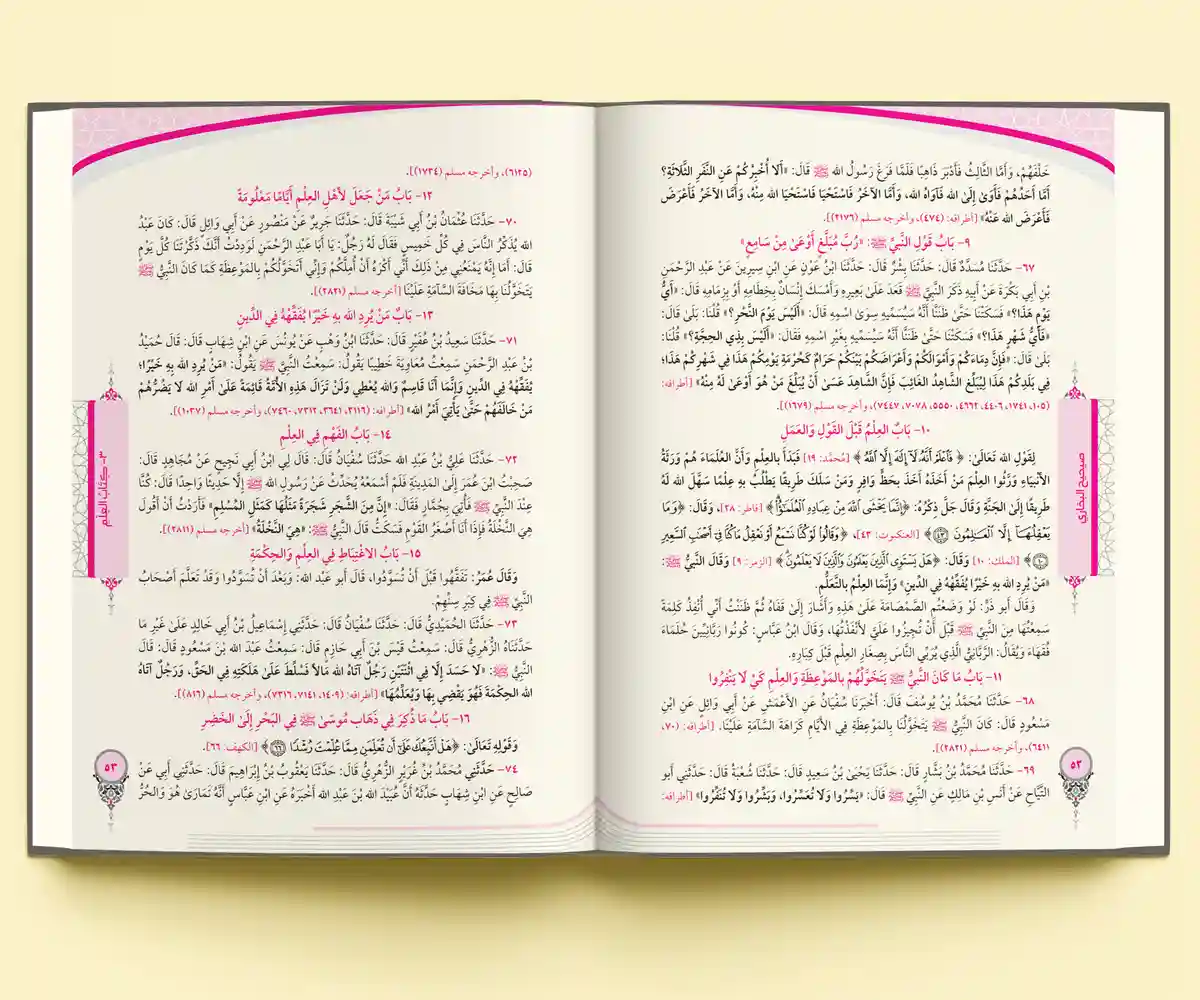 خَلْفَهُمْ، وَأَمَّا الثَّالِثُ فَأَدْبَرَ ذَاهِبًا فَلَمَّا فَرَغَ رَسُولُ الله ﷺ قَالَ: «أَلَا أُخْبِرُكُمْ عَنِ النَّفَرِ الثَّلَاثَةِ؟
أَمَّا أَحَدُهُمْ فَأَوَىٰ إِلَى الله فَآوَاهُ الله، وَأَمَّا الآخَرُ فَاسْتَحْيَا فَاسْتَحْيَا الله مِنْهُ، وَأَمَّا الآخَرُ فَأَعْرَضَ
فَأَعْرَضَ الله عَنْهُ» [أطرافه: (٤٧٤)، وأخرجه مسلم (٢١٧٦)].
٩- بَابُ قَوْلِ النَّبِيِّ ﷺ: «رُبَّ مُبَلَّغٍ أَوْعَىٰ مِنْ سَامِعٍ»
٦٧- حَدَّثَنَا مُسَدَّدٌ قَالَ: حَدَّثَنَا بِشْرٌ قَالَ: حَدَّثَنَا ابْنُ عَوْنٍ عَنِ ابْنِ سِيرِينَ عَنْ عَبْدِ الرَّحْمَنِ
بْنِ أَبِي بَكْرَةَ عَنْ أَبِيهِ ذَكَرَ النَّبِيَّ ﷺ قَعَدَ عَلَىٰ بَعِيرِهِ وَأَمْسَكَ إِنْسَانٌ بِخِطَامِهِ أَوْ بِزِمَامِهِ قَالَ: «أَيُّ
يَوْمٍ هَذَا؟» فَسَكَتْنَا حَتَّىٰ ظَنَنَّا أَنَّهُ سَيُسَمِّيهِ سِوَىٰ اسْمِهِ قَالَ: «أَلَيْسَ يَوْمَ النَّحْرِ؟» قُلْنَا: بَلَىٰ قَالَ:
«فَأَيُّ شَهْرٍ هَذَا؟» فَسَكَتْنَا حَتَّىٰ ظَنَنَّا أَنَّهُ سَيُسَمِّيهِ بِغَيْرِ اسْمِهِ فَقَالَ: «أَلَيْسَ بِذِي الحِجَّةِ؟» قُلْنَا:
بَلَىٰ قَالَ: «فَإِنَّ دِمَاءَكُمْ وَأَمْوَالَكُمْ وَأَعْرَاضَكُمْ بَيْنَكُمْ حَرَامٌ كَحُرْمَةِ يَوْمِكُمْ هَذَا فِي شَهْرِكُمْ هَذَا؛
فِي بَلَدِكُمْ هَذَا لِيُبَلِّغِ الشَّاهِدُ الغَائِبَ فَإِنَّ الشَّاهِدَ عَسَىٰ أَنْ يُبَلِّغَ مَنْ هُوَ أَوْعَىٰ لَهُ مِنْهُ» [أطرافه:
(١٠٥، ١٧٤١، ٤٤٠٦، ٤٦٦٢، ٥٥٥٠، ٧٠٧٨، ٧٤٤٧)، وأخرجه مسلم (١٦٧٩)].
١٠- بَابُ العِلْمُ قَبْلَ القَوْلِ وَالعَمَلِ
لِقَوْلِ الله تَعَالَىٰ: ﴿فَاعْلَمْ أَنَّهُ لَا إِلَهَ إِلَّا اللَّهُ﴾ [مُحمَّد: ١٩] فَبَدَأَ بِالعِلْمِ وَأَنَّ العُلَمَاءَ هُمْ وَرَثَةُ
الأَنْبِيَاءِ وَرَّثُوا العِلْمَ مَنْ أَخَذَهُ أَخَذَ بِحَظٍّ وَافِرٍ وَمَنْ سَلَكَ طَرِيقًا يَطْلُبُ بِهِ عِلْمًا سَهَّلَ الله لَهُ
طَرِيقًا إِلَىٰ الجَنَّةِ وَقَالَ جَلَّ ذِكْرُهُ: ﴿إِنَّمَا يَخْشَى اللَّهَ مِنْ عِبَادِهِ الْعُلَمَاءُ﴾ [فاطر: ٢٨]، وَقَالَ: ﴿وَمَا
يَعْقِلُهَا إِلَّا الْعَالِمُونَ ٤٣﴾ [العنكبوت: ٤٣]، ﴿وَقَالُوا لَوْ كُنَّا نَسْمَعُ أَوْ نَعْقِلُ مَا كُنَّا فِي أَصْحَابِ السَّعِيرِ
١٠﴾ [الملك: ١٠] وَقَالَ: ﴿هَلْ يَسْتَوِي الَّذِينَ يَعْلَمُونَ وَالَّذِينَ لَا يَعْلَمُونَ﴾ [الزمر: ٩] وَقَالَ النَّبِيُّ ﷺ:
«مَنْ يُرِدِ الله بِهِ خَيْرًا يُفَقِّهْهُ فِي الدِّينِ» وَإِنَّمَا العِلْمُ بِالتَّعَلُّمِ.
وَقَالَ أَبو ذَرٍّ: لَوْ وَضَعْتُمِ الصَّمْصَامَةَ عَلَىٰ هَذِهِ وَأَشَارَ إِلَىٰ قَفَاهُ ثُمَّ ظَنَنْتُ أَنِّي أُنْفِذُ كَلِمَةً
سَمِعْتُهَا مِنَ النَّبِيِّ ﷺ قَبْلَ أَنْ تُجِيزُوا عَلَيَّ لأَنْفَذْتُهَا، وَقَالَ ابْنُ عَبَّاسٍ: كُونُوا رَبَّانِيِّينَ حُلَمَاءَ
فُقَهَاءَ وَيُقَالُ: الرَّبَّانِيُّ الَّذِي يُرَبِّي النَّاسَ بِصِغَارِ العِلْمِ قَبْلَ كِبَارِهِ.
١١- بَابُ مَا كَانَ النَّبِيُّ ﷺ يَتَخَوَّلُهُمْ بِالمَوْعِظَةِ وَالعِلْمِ كَيْ لَا يَنْفِرُوا
٦٨- حَدَّثَنَا مُحَمَّدُ بْنُ يُوسُفَ قَالَ: أَخْبَرَنَا سُفْيَانُ عَنِ الأَعْمَشِ عَنْ أَبِي وَائِلٍ عَنِ ابْنِ
مَسْعُودٍ قَالَ: كَانَ النَّبِيُّ ﷺ يَتَخَوَّلُنَا بِالمَوْعِظَةِ فِي الأَيَّامِ كَرَاهَةَ السَّآمَةِ عَلَيْنَا. [أطرافه: (٧٠،
٦٤١١)، وأخرجه مسلم (٢٨٢١)].
٦٩- حَدَّثَنَا مُحَمَّدُ بْنُ بَشَّارٍ قَالَ: حَدَّثَنَا يَحْيَىٰ بْنُ سَعِيدٍ قَالَ: حَدَّثَنَا شُعْبَةُ قَالَ: حَدَّثَنِي أَبو
التَّيَّاحِ عَنْ أَنَسِ بْنِ مَالِكٍ عَنِ النَّبِيِّ ﷺ قَالَ: «يَسِّرُوا وَلَا تُعَسِّرُوا، وَبَشِّرُوا وَلَا تُنَفِّرُوا» [أطرافه:
صحيح البخاري
٥٢
(٦١٢٥)، وأخرجه مسلم (١٧٣٤)].
١٢- بَابُ مَنْ جَعَلَ لأَهْلِ العِلْمِ أَيَّامًا مَعْلُومَةً
٧٠- حَدَّثَنَا عُثْمَانُ بْنُ أَبِي شَيْبَةَ قَالَ: حَدَّثَنَا جَرِيرٌ عَنْ مَنْصُورٍ عَنْ أَبِي وَائِلٍ قَالَ: كَانَ عَبْدُ
الله يُذَكِّرُ النَّاسَ فِي كُلِّ خَمِيسٍ فَقَالَ لَهُ رَجُلٌ: يَا أَبَا عَبْدِ الرَّحْمَنِ لَوَدِدْتُ أَنَّكَ ذَكَّرْتَنَا كُلَّ يَوْمٍ
قَالَ: أَمَا إِنَّهُ يَمْنَعُنِي مِنْ ذَلِكَ أَنِّي أَكْرَهُ أَنْ أُمِلَّكُمْ وَإِنِّي أَتَخَوَّلُكُمْ بِالمَوْعِظَةِ كَمَا كَانَ النَّبِيُّ ﷺ
يَتَخَوَّلُنَا بِهَا مَخَافَةَ السَّآمَةِ عَلَيْنَا [أخرجه مسلم (٢٨٢١)].
١٣- بَابٌ مَنْ يُرِدِ الله بِهِ خَيْرًا يُفَقِّهْهُ فِي الدِّينِ
٧١- حَدَّثَنَا سَعِيدُ بْنُ عُفَيْرٍ قَالَ: حَدَّثَنَا ابْنُ وَهْبٍ عَنْ يُونُسَ عَنِ ابْنِ شِهَابٍ قَالَ: قَالَ حُمَيْدُ
بْنُ عَبْدِ الرَّحْمَنِ سَمِعْتُ مُعَاوِيَةَ خَطِيبًا يَقُولُ: سَمِعْتُ النَّبِيَّ ﷺ يَقُولُ: «مَنْ يُرِدِ الله بِهِ خَيْرًا؛
يُفَقِّهْهُ فِي الدِّينِ وَإِنَّمَا أَنَا قَاسِمٌ وَالله يُعْطِي وَلَنْ تَزَالَ هَذِهِ الأُمَّةُ قَائِمَةً عَلَىٰ أَمْرِ الله لَا يَضُرُّهُمْ
مَنْ خَالَفَهُمْ حَتَّىٰ يَأْتِيَ أَمْرُ الله» [أطرافه: (٣١١٦، ٣٦٤١، ٧٣١٢، ٧٤٦٠)، وأخرجه مسلم (١٠٣٧)].
١٤- بَابُ الفَهْمِ فِي العِلْمِ
٧٢- حَدَّثَنَا عَلِيُّ بْنُ عَبْدِ الله حَدَّثَنَا سُفْيَانُ قَالَ: قَالَ لِي ابْنُ أَبِي نَجِيحٍ عَنْ مُجَاهِدٍ قَالَ:
صَحِبْتُ ابْنَ عُمَرَ إِلَىٰ المَدِينَةِ فَلَمْ أَسْمَعْهُ يُحَدِّثُ عَنْ رَسُولِ الله ﷺ إِلَّا حَدِيثًا وَاحِدًا قَالَ: كُنَّا
عِنْدَ النَّبِيِّ ﷺ فَأُتِيَ بِجُمَّارٍ فَقَالَ: «إِنَّ مِنَ الشَّجَرِ شَجَرَةً مَثَلُهَا كَمَثَلِ المُسْلِمِ» فَأَرَدْتُ أَنْ أَقُولَ
هِيَ النَّخْلَةُ فَإِذَا أَنَا أَصْغَرُ القَوْمِ فَسَكَتُّ قَالَ النَّبِيُّ ﷺ: «هِيَ النَّخْلَةُ» [أخرجه مسلم (٢٨١١)].
١٥- بَابُ الاغْتِبَاطِ فِي العِلْمِ وَالحِكْمَةِ
وَقَالَ عُمَرُ: تَفَقَّهُوا قَبْلَ أَنْ تُسَوَّدُوا، قَالَ أَبو عَبْد الله: وَبَعْدَ أَنْ تُسَوَّدُوا وَقَدْ تَعَلَّمَ أَصْحَابُ
النَّبِيِّ ﷺ فِي كِبَرِ سِنِّهِمْ.
٧٣- حَدَّثَنَا الحُمَيْدِيُّ قَالَ: حَدَّثَنَا سُفْيَانُ قَالَ: حَدَّثَنِي إِسْمَاعِيلُ بْنُ أَبِي خَالِدٍ عَلَىٰ غَيْرِ مَا
حَدَّثَنَاهُ الزُّهْرِيُّ قَالَ: سَمِعْتُ قَيْسَ بْنَ أَبِي حَازِمٍ قَالَ: سَمِعْتُ عَبْدَ الله بْنَ مَسْعُودٍ قَالَ: قَالَ
النَّبِيُّ ﷺ: «لَا حَسَدَ إِلَّا فِي اثْنَتَيْنِ رَجُلٌ آتَاهُ الله مَالًا فَسُلِّطَ عَلَىٰ هَلَكَتِهِ فِي الحَقِّ، وَرَجُلٌ آتَاهُ
الله الحِكْمَةَ فَهُوَ يَقْضِي بِهَا وَيُعَلِّمُهَا» [أطرافه: (١٤٠٩، ٧١٤١، ٧٣١٦)، وأخرجه مسلم (٨١٦)].
١٦- بَابُ مَا ذُكِرَ فِي ذَهَابِ مُوسَىٰ ﷺ فِي البَحْرِ إِلَىٰ الخَضِرِ
وَقَوْلِهِ تَعَالَىٰ: ﴿هَلْ أَتَّبِعُكَ عَلَى أَنْ تُعَلِّمَنِ مِمَّا عُلِّمْتَ رُشْدًا ٦٦﴾ [الكهف: ٦٦].
٧٤- حَدَّثَنِي مُحَمَّدُ بْنُ غُرَيْرٍ الزُّهْرِيُّ قَالَ: حَدَّثَنَا يَعْقُوبُ بْنُ إِبْرَاهِيمَ قَالَ: حَدَّثَنِي أَبِي عَنْ
صَالِحٍ عَنِ ابْنِ شِهَابٍ حَدَّثَهُ أَنَّ عُبَيْدَ الله بْنَ عَبْدِ الله أَخْبَرَهُ عَنِ ابْنِ عَبَّاسٍ أَنَّهُ تَمَارَىٰ هُوَ وَالحُرُّ
٣- كِتَابُ العِلْمِ
٥٣